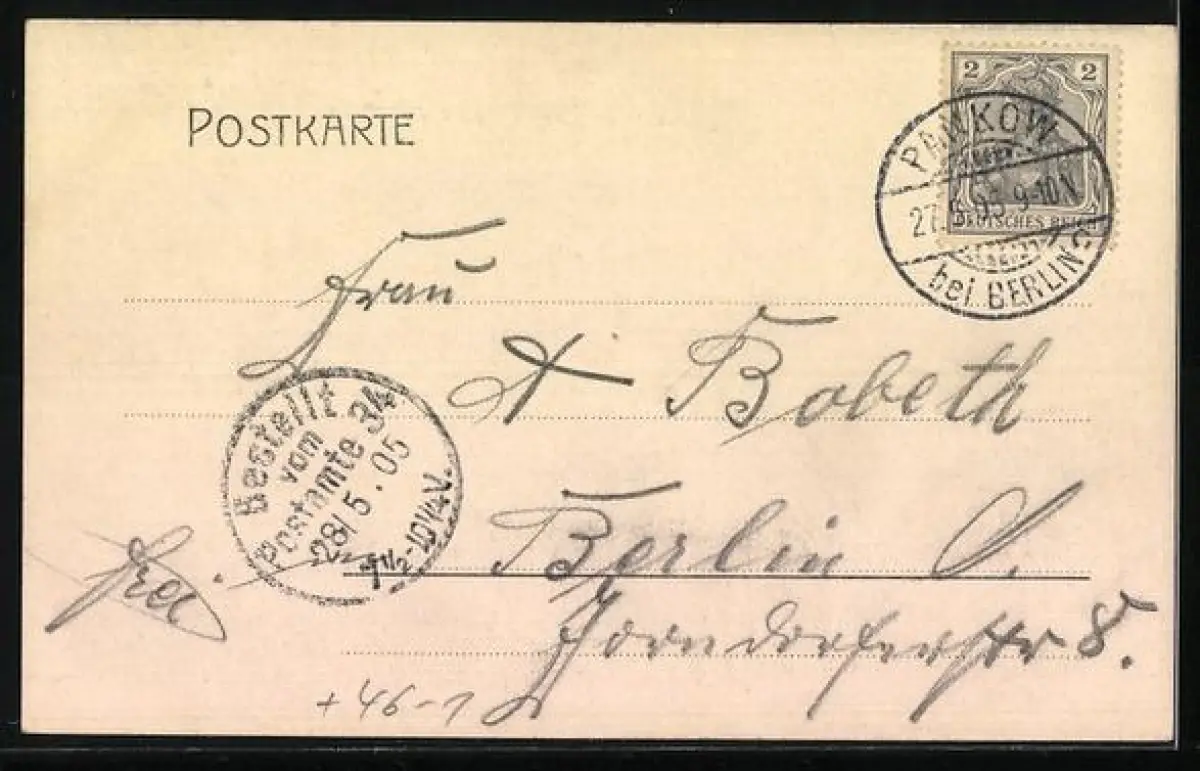 POSTKARTE
2 2
DEUTSCHES REICH
PANKOW
27.5.05 9-10N
bei BERLIN
Frau
A Bobeth
Bestellt
vom
Postamte 34
28/5.05
7½-10¼V.
Berlin O.
frei
Zorndorferstr 8.
+46-1